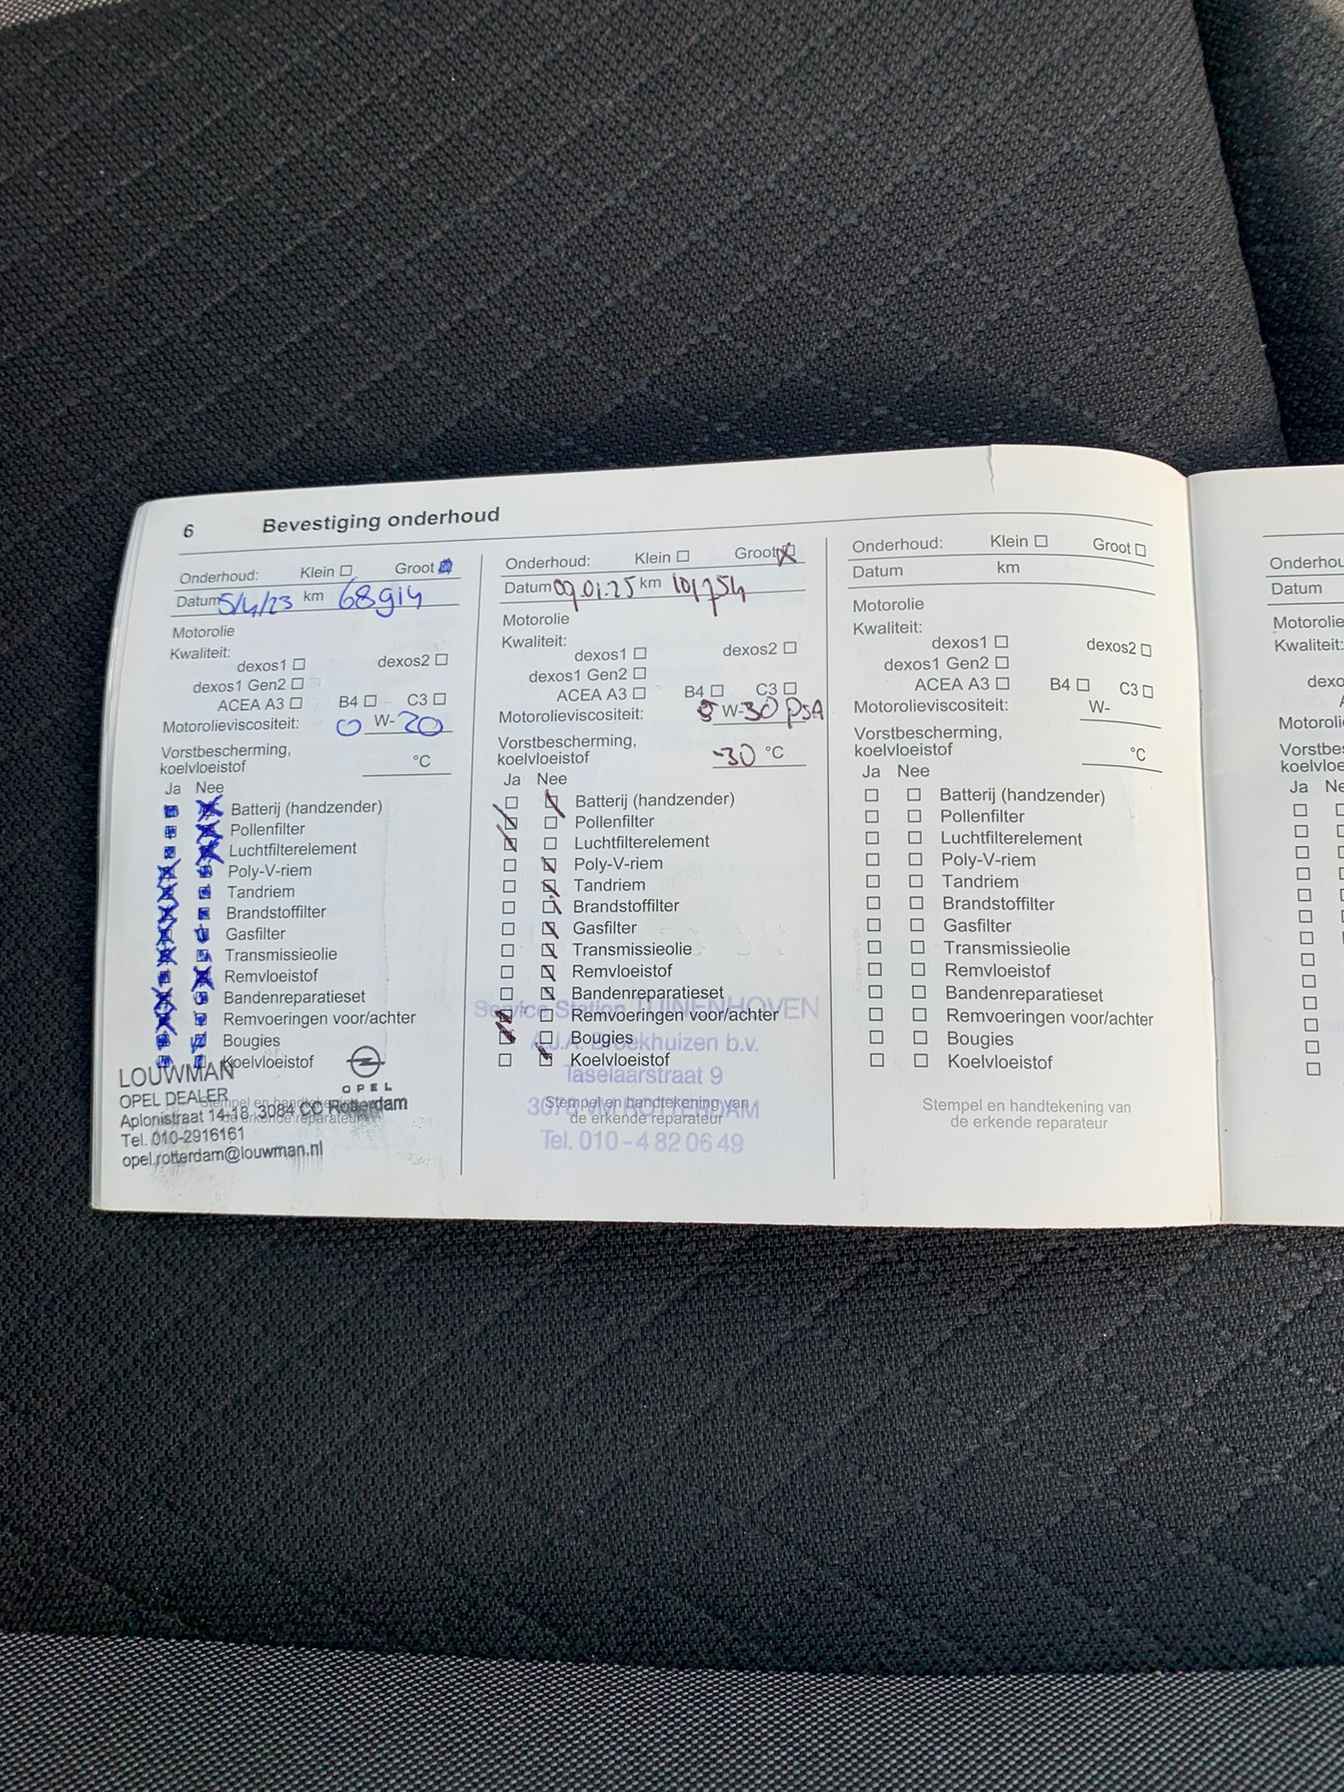 6 Bevestiging onderhoud
Onderhoud: Klein Groot
Datum 5/4/23 km 68914
Motorolie
Kwaliteit:
dexos1 dexos2
dexos1 Gen2
ACEA A3 B4 C3
Motorolieviscositeit: 0 W-20
Vorstbescherming,
koelvloeistof °C
Ja Nee
Batterij (handzender)
Pollenfilter
Luchtfilterelement
Poly-V-riem
Tandriem
Brandstoffilter
Gasfilter
Transmissieolie
Remvloeistof
Bandenreparatieset
Remvoeringen voor/achter
Bougies
Koelvloeistof
LOUWMAN
OPEL
OPEL DEALER
Stempel en handtekening
Aplonistraat 14-18, 3084 CC Rotterdam
de erkende reparateur
Tel. 010-2916161
opel.rotterdam@louwman.nl
Onderhoud: Klein Groot
Datum 09.01.25 km 101754
Motorolie
Kwaliteit:
dexos1 dexos2
dexos1 Gen2
ACEA A3 B4 C3
Motorolieviscositeit: 5 W-30 PSA
Vorstbescherming,
koelvloeistof -30 °C
Ja Nee
Batterij (handzender)
Pollenfilter
Luchtfilterelement
Poly-V-riem
Tandriem
Brandstoffilter
Gasfilter
Transmissieolie
Remvloeistof
Bandenreparatieset
Service Station TUINENHOVEN
Remvoeringen voor/achter
Bougies
A.J.A. Broekhuizen b.v.
Koelvloeistof
Taselaarstraat 9
Stempel en handtekening van
3078 ROTTERDAM
de erkende reparateur
Tel. 010 - 4 82 06 49
Onderhoud: Klein Groot
Datum km
Motorolie
Kwaliteit:
dexos1 dexos2
dexos1 Gen2
ACEA A3 B4 C3
Motorolieviscositeit: W-
Vorstbescherming,
koelvloeistof °C
Ja Nee
Batterij (handzender)
Pollenfilter
Luchtfilterelement
Poly-V-riem
Tandriem
Brandstoffilter
Gasfilter
Transmissieolie
Remvloeistof
Bandenreparatieset
Remvoeringen voor/achter
Bougies
Koelvloeistof
Stempel en handtekening van
de erkende reparateur
Datum
Motorolie
Kwaliteit:
Ja